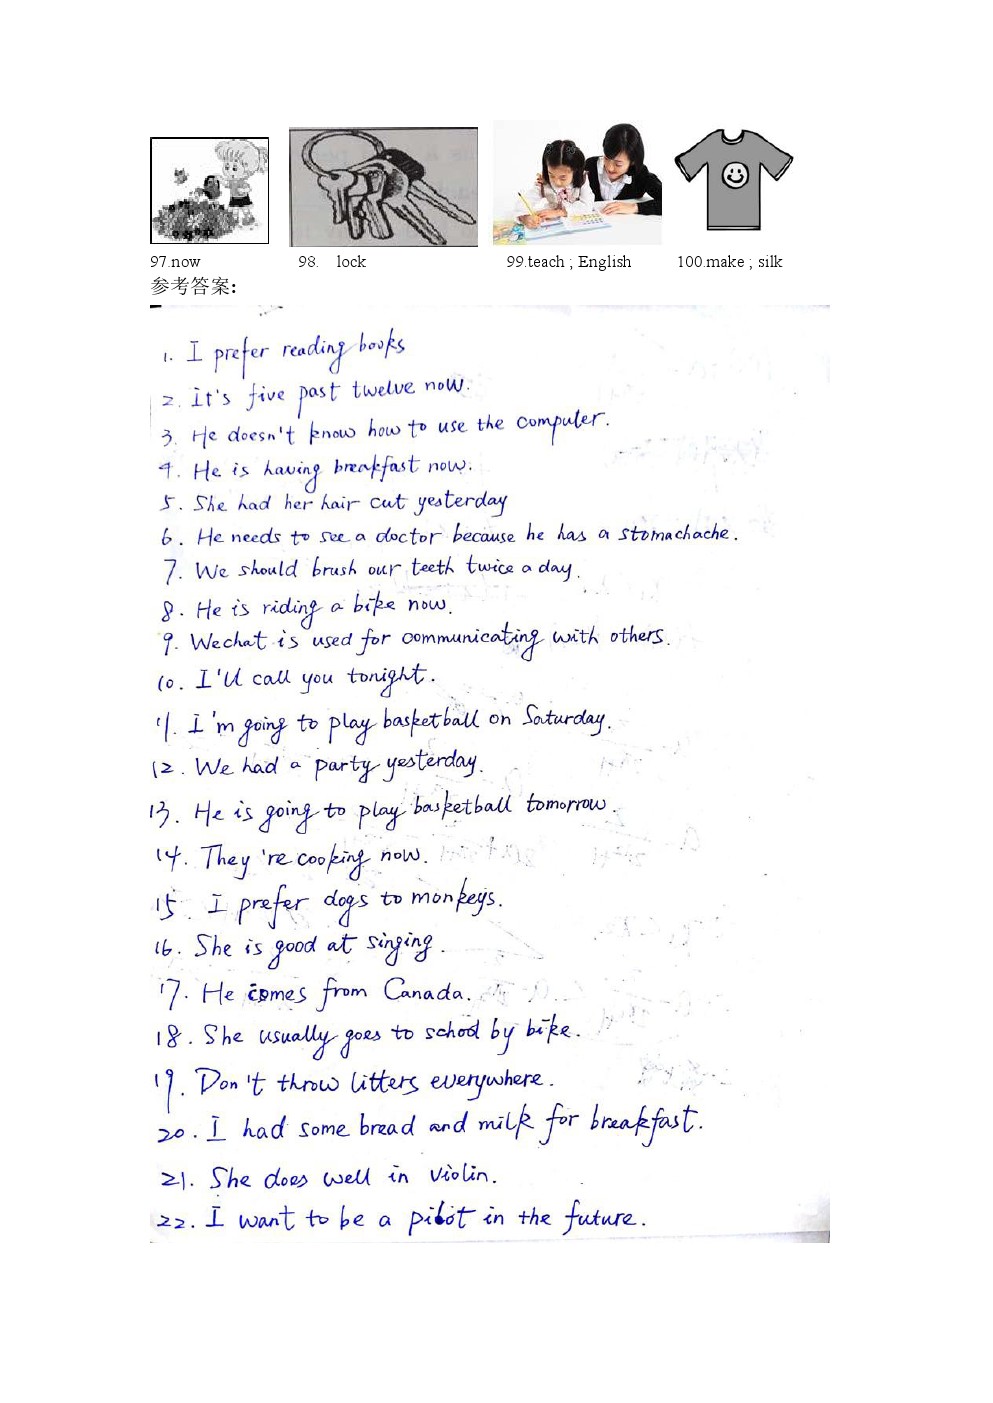 97.now 98. lock 99.teach ; English 100.make ; silk
参考答案:
1. I prefer reading books
2. It's five past twelve now.
3. He doesn't know how to use the computer.
4. He is having breakfast now.
5. She had her hair cut yesterday
6. He needs to see a doctor because he has a stomachache.
7. We should brush our teeth twice a day.
8. He is riding a bike now.
9. Wechat is used for communicating with others.
10. I'll call you tonight.
11. I'm going to play basketball on Saturday.
12. We had a party yesterday.
13. He is going to play basketball tomorrow.
14. They're cooking now.
15. I prefer dogs to monkeys.
16. She is good at singing.
17. He comes from Canada.
18. She usually goes to school by bike.
19. Don't throw litters everywhere.
20. I had some bread and milk for breakfast.
21. She does well in violin.
22. I want to be a pilot in the future.